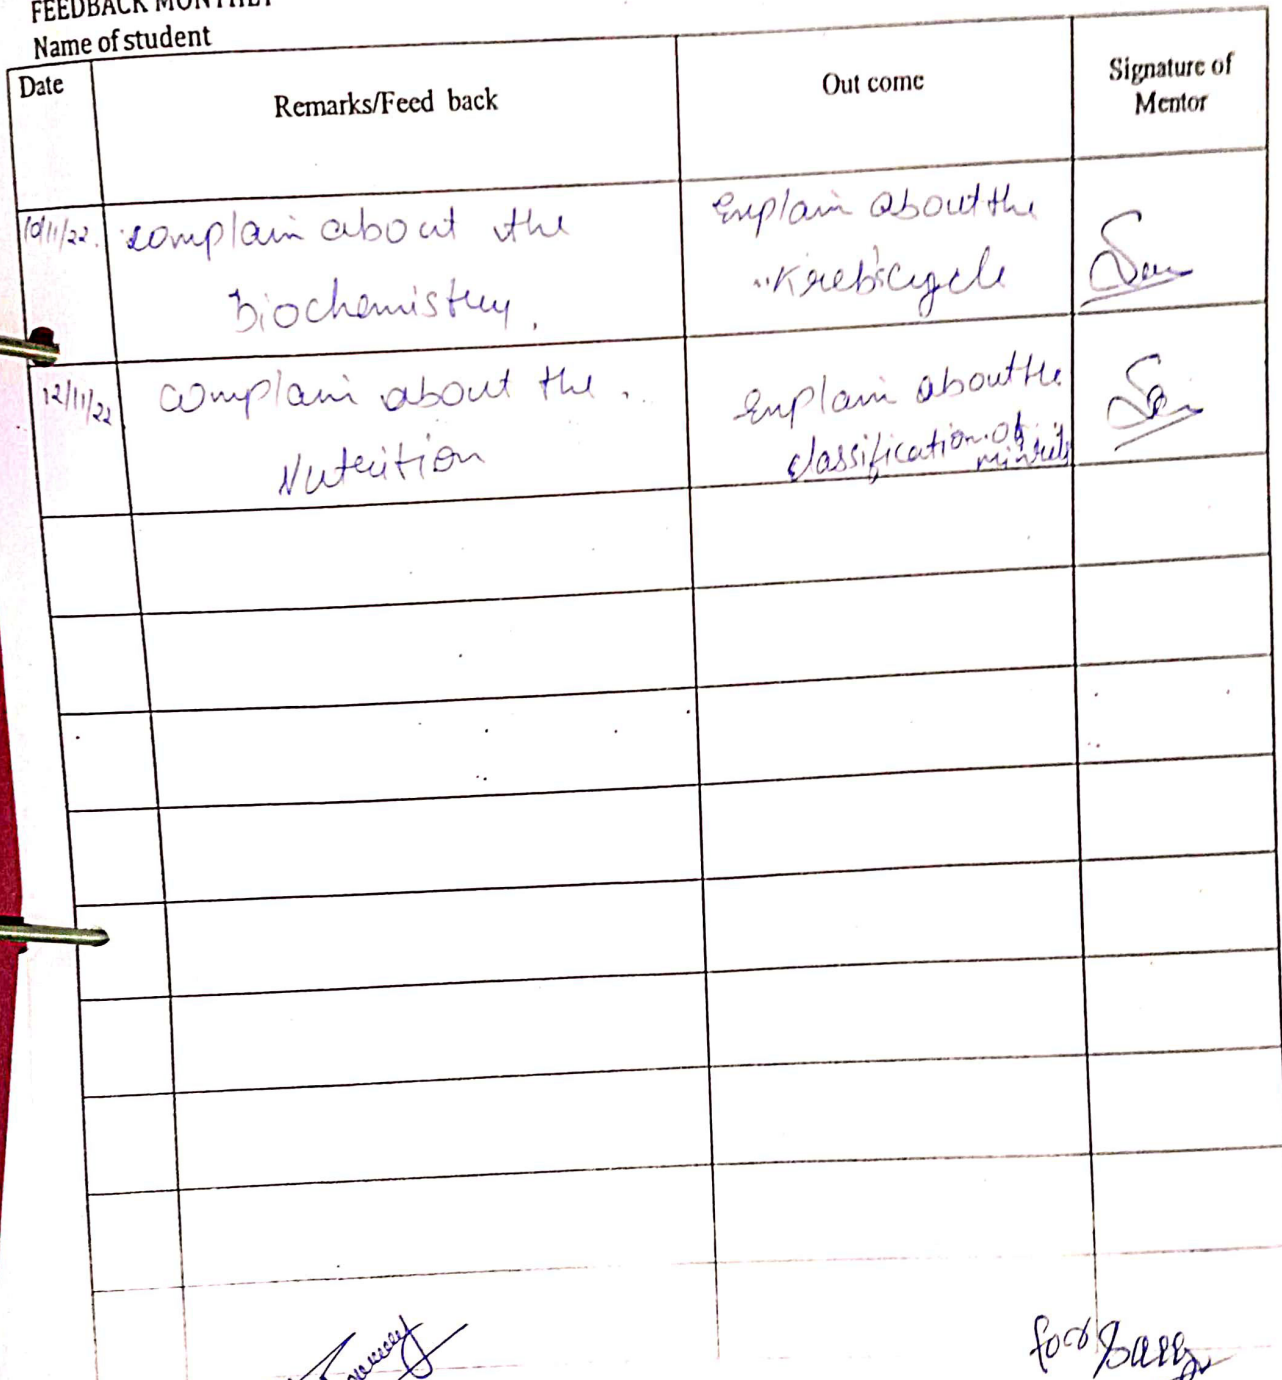 FEEDBACK MONTHLY
Name of student
Date
Remarks/Feed back
Out come
Signature of
Mentor
10/11/22. complain about the
biochemistry.
Explain about the
"Kreb's cycle
12/11/22 complain about the.
Nutrition
Explain about the
classification of
for